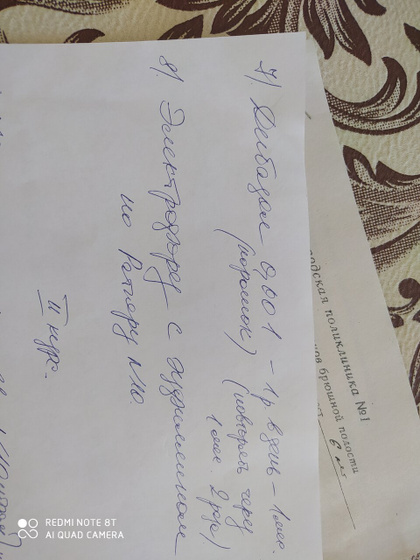 7) Дибазол 0,001 – 1 р в день – 1 мес.
(порошок) (повторять через
1 мес. 2 раза)
8) Электрофорез с эуфиллином
по Ратнеру №10.
II курс.
одская поликлиника №1
нов брюшной полости
6 лет
REDMI NOTE 8T
AI QUAD CAMERA